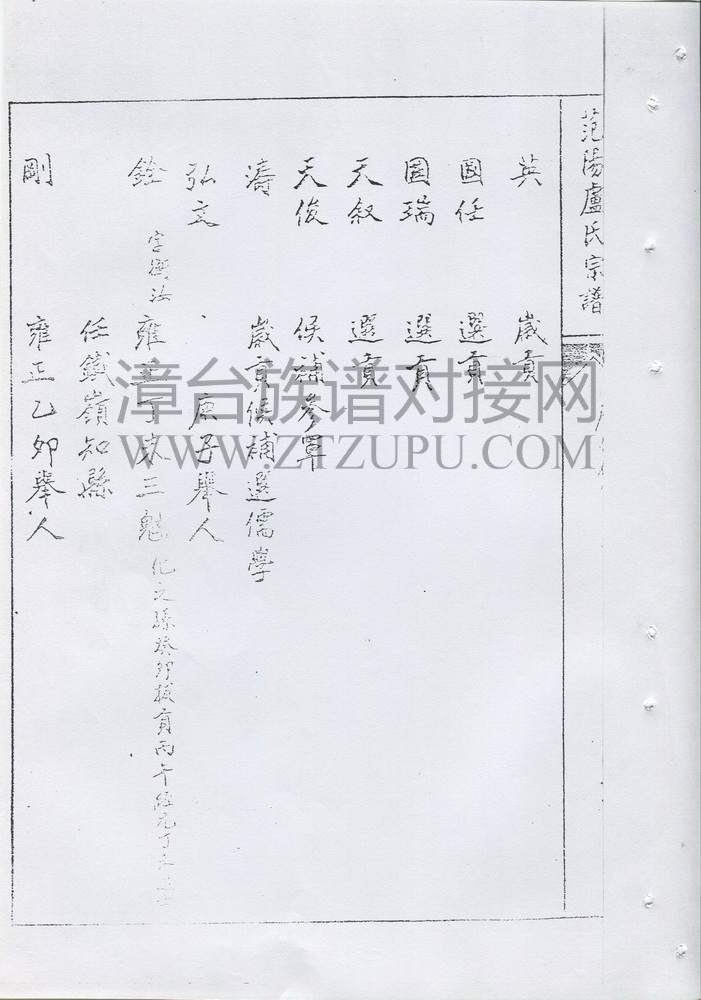 范陽盧氏宗譜
英 歲貢
國任 選貢
國瑞 選貢
天叙 選貢
天俊 候補參軍
濤 歲貢候補選儒學
弘文 庚子舉人
銓 字衡汝 雍正丁未三魁 之孫癸卯拔貢丙午經元丁
任鐵嶺知縣
剛 雍正乙卯舉人
漳台族谱对接网
WWW.ZTZUPU.COM